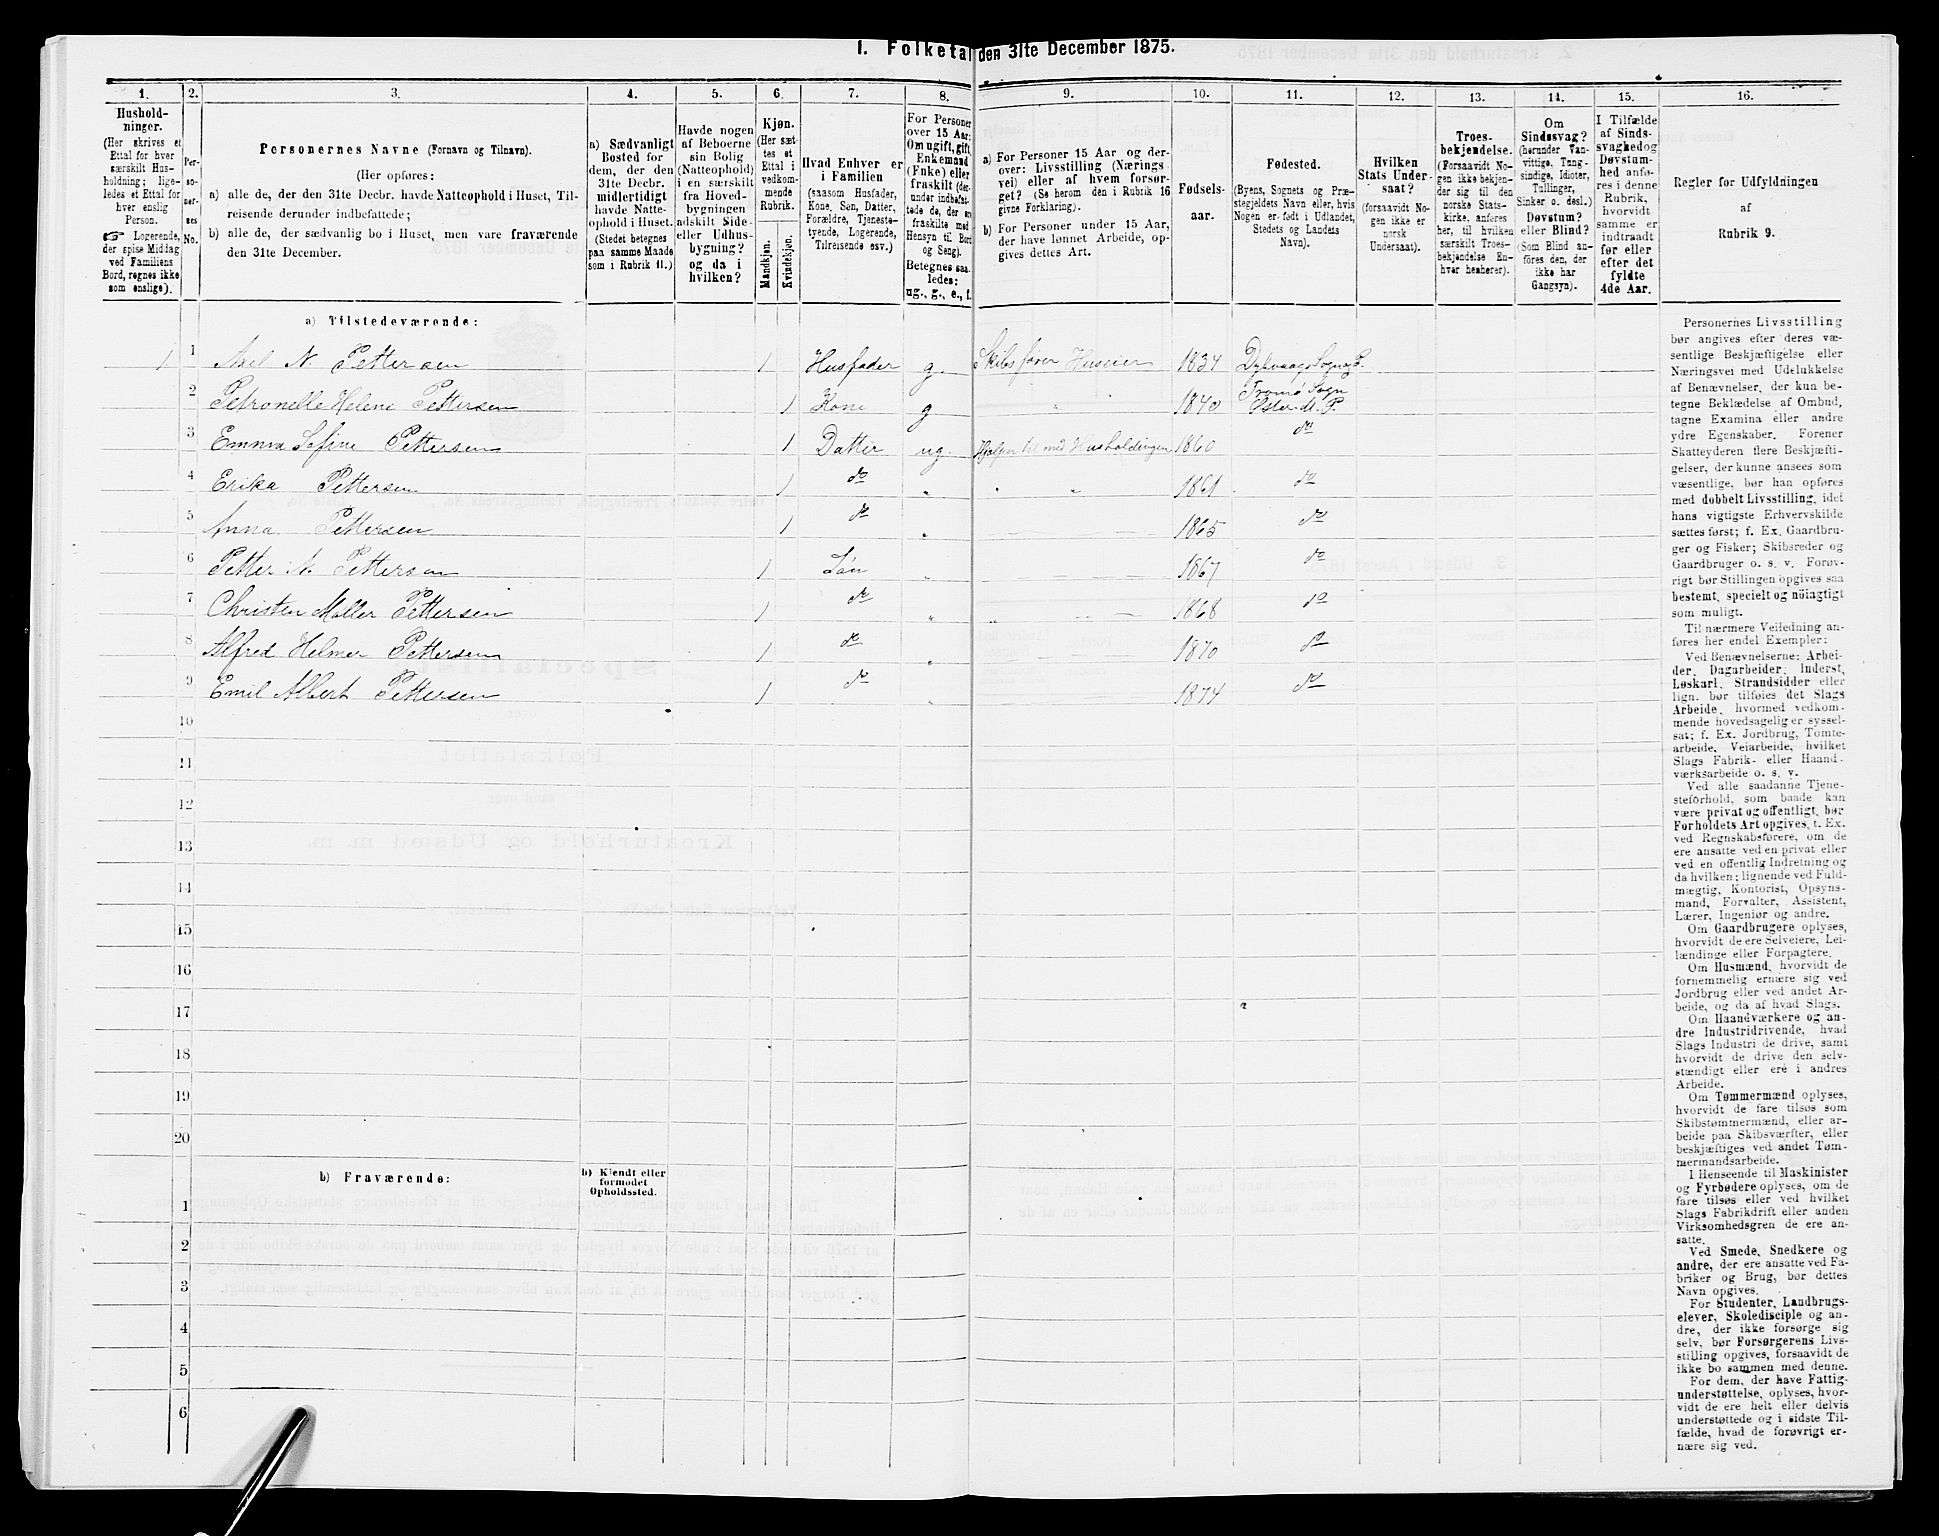 1. Folketal den 31te December 1875.
1. 2. 3. 4. 5. 6. 7. 8. 9. 10. 11. 12. 13. 14. 15. 16.
Hushold-
ninger.
(Her skrives et
Ettal for hver
særskilt Hus-
holdning; lige-
ledes et Ettal for
hver enslig
Person.
☞ Logerende,
der spise Middag
ved Familiens
Bord, regnes ikke
som enslige).
Per-
so-
ner-
nes
No.
Personernes Navne (Fornavn og Tilnavn).
(Her opføres:
a) alle de, der den 31te Decbr. havde Natteophold i Huset, Til-
reisende derunder indbefattede;
b) alle de, der sædvanlig bo i Huset, men vare fraværende
den 31te December.
a) Sædvanligt
Bosted for
dem, der den
31te Decbr.
midlertidigt
havde Natte-
ophold i Huset.
(Stedet betegnes
paa samme Maade
som i Rubrik 11.)
Havde nogen
af Beboerne
sin Bolig
(Natteophold)
i en særskilt
fra Hoved-
bygningen
adskilt Side-
eller Udhus-
bygning?
og da i
hvilken?
Kjøn.
(Her sæt-
tes et
Ettal i
vedkom-
mende
Rubrik.
Mandkjøn.
Kvindekjøn.
Hvad Enhver er
i Familien
(saasom Husfader,
Kone, Søn, Datter,
Forældre, Tjeneste-
tyende, Logerende,
Tilreisende osv.)
For Personer
over 15 Aar:
Om ugift, gift,
Enkemand
(Enke) eller
fraskilt (der-
under indbefat-
tede de, der ere
fraskilte med
Hensyn til Bord
og Seng).
Betegnes saa-
ledes:
ug., g., e., f.
a) For Personer 15 Aar og der-
over: Livsstilling (Nærings-
vei) eller af hvem forsør-
get? (Se herom den i Rubrik 16
givne Forklaring).
b) For Personer under 15 Aar,
der have lønnet Arbeide, op-
gives dettes Art.
Fødsels-
aar.
Fødested.
(Byens, Sognets og Præ-
stegjeldets Navn eller, hvis
Nogen er født i Udlandet,
Stedets og Landets
Navn).
Hvilken
Stats Under-
saat?
(forsaavidt No-
gen ikke er
norsk
Undersaat).
Troes-
bekjendelse.
(Forsaavidt No-
gen ikke bekjen-
der sig til den
norske Stats-
kirke, anføres
her, til hvilken
særskilt Troes-
bekjendelse En-
hver henhører).
Om
Sindssvag?
(herunder Van-
vittige, Tung-
sindige, Idioter,
Tullinger,
Sinker o. desl.)
Døvstum?
eller Blind?
(Som Blind an-
føres den, der
ikke har
Gangsyn).
I Tilfælde
af Sinds-
svaghed og
Døvstum-
hed anfø-
res i denne
Rubrik,
hvorvidt
samme er
indtraadt
før eller
efter det
fyldte
4de Aar.
Regler for Udfyldningen
af
Rubrik 9.
a) Tilstedeværende:
1 1 Axel N. Pettersen 1 Husfader g. Skibsfører Huseier 1834 Dybvaags Sogn P.
2 Petronelle Helene Pettersen 1 Kone g " 1840 Tromø Sogn Øster-M. P.
3 Emma Sofine Pettersen 1 Datter ug. Hjælper til med Husholdningen 1860 do
4 Erika Pettersen 1 do " " " 1861 do
5 Anna Pettersen 1 do " 1865 do
6 Petter N. Pettersen 1 Søn " 1867 do
7 Christen Møller Pettersen 1 do " " 1868 do
8 Alfred Helmer Pettersen 1 do " 1870 do
9 Emil Albert Pettersen 1 do " 1874 do
10
11
12
13
14
15
16
17
18
19
20
b) Fraværende:
b) Kjendt eller
formodet
Opholdssted.
1
2
3
4
5
6
Personernes Livsstilling
bør angives efter deres væ-
sentlige Beskjæftigelse eller
Næringsvei med Udelukkelse
af Benævnelser, der kun be-
tegne Beklædelse af Ombud,
tagne Examina eller andre
ydre Egenskaber. Forener
Skatteyderen flere Beskjæfti-
gelser, der kunne ansees som
væsentlige, bør han opføres
med dobbelt Livsstilling, idet
hans vigtigste Erhvervskilde
sættes først; f. Ex. Gaardbru-
ger og Fisker; Skibsreder og
Gaardbruger o. s. v. Forøv-
rigt bør Stillingen opgives saa
bestemt, specielt og nøiagtigt
som muligt.
Til nærmere Veiledning an-
føres her endel Exempler:
Ved Benævnelserne: Arbei-
der, Dagarbeider, Inderst,
Løskarl, Strandsidder eller
lign. bør tilføies det Slags
Arbeide, hvormed vedkom-
mende hovedsagelig er syssel-
sat; f. Ex. Jordbrug, Tomte-
arbeide, Veiarbeide, hvilket
Slags Fabrik- eller Haand-
værksarbeide o. s. v.
Ved alle saadanne Tjene-
steforhold, som baade kan
være privat og offentligt, bør
Forholdets Art opgives, t. Ex.
ved Regnskabsførere, om de
ere ansatte ved en privat eller
ved en offentlig Indretning og
da hvilken; lignende ved Fuld-
mægtig, Kontorist, Opsyns-
mand, Forvalter, Assistent,
Lærer, Ingeniør og andre.
Om Gaardbrugere oplyses,
hvorvidt de ere Selveiere, Lei-
lændinge eller Forpagtere.
Om Husmænd, hvorvidt de
fornemmelig ernære sig ved
Jordbrug eller ved andet Ar-
beide, og da af hvad Slags.
Om Haandværkere og an-
dre Industridrivende, hvad
Slags Industri de drive, samt
hvorvidt de drive den selv-
stændigt eller ere i andres
Arbeide.
Om Tømmermænd oplyses,
hvorvidt de fare tilsøs som
Skibstømmermænd, eller ar-
beide paa Skibsværfter, eller
beskjæftiges ved andet Tøm-
mermandsarbeide.
I Henseende til Maskinister
og Fyrbødere oplyses, om de
fare tilsøs eller ved hvilket
Slags Fabrikdrift eller anden
Virksomhedsgren de ere an-
satte.
Ved Smede, Snedkere og
andre, der ere ansatte ved Fa-
briker og Brug, bør dettes
Navn opgives.
For Studenter, Landbrugs-
elever, Skoledisciple og an-
dre, der ikke forsørge sig
selv, bør Forsørgerens Livs-
stilling opgives, forsaavidt de
ikke bo sammen med denne.
For dem, der have Fattig-
understøttelse, oplyses, hvor-
vidt de ere helt eller delvis
understøttede og i sidste Til-
fælde, hvad de forøvrigt er-
nære sig ved.